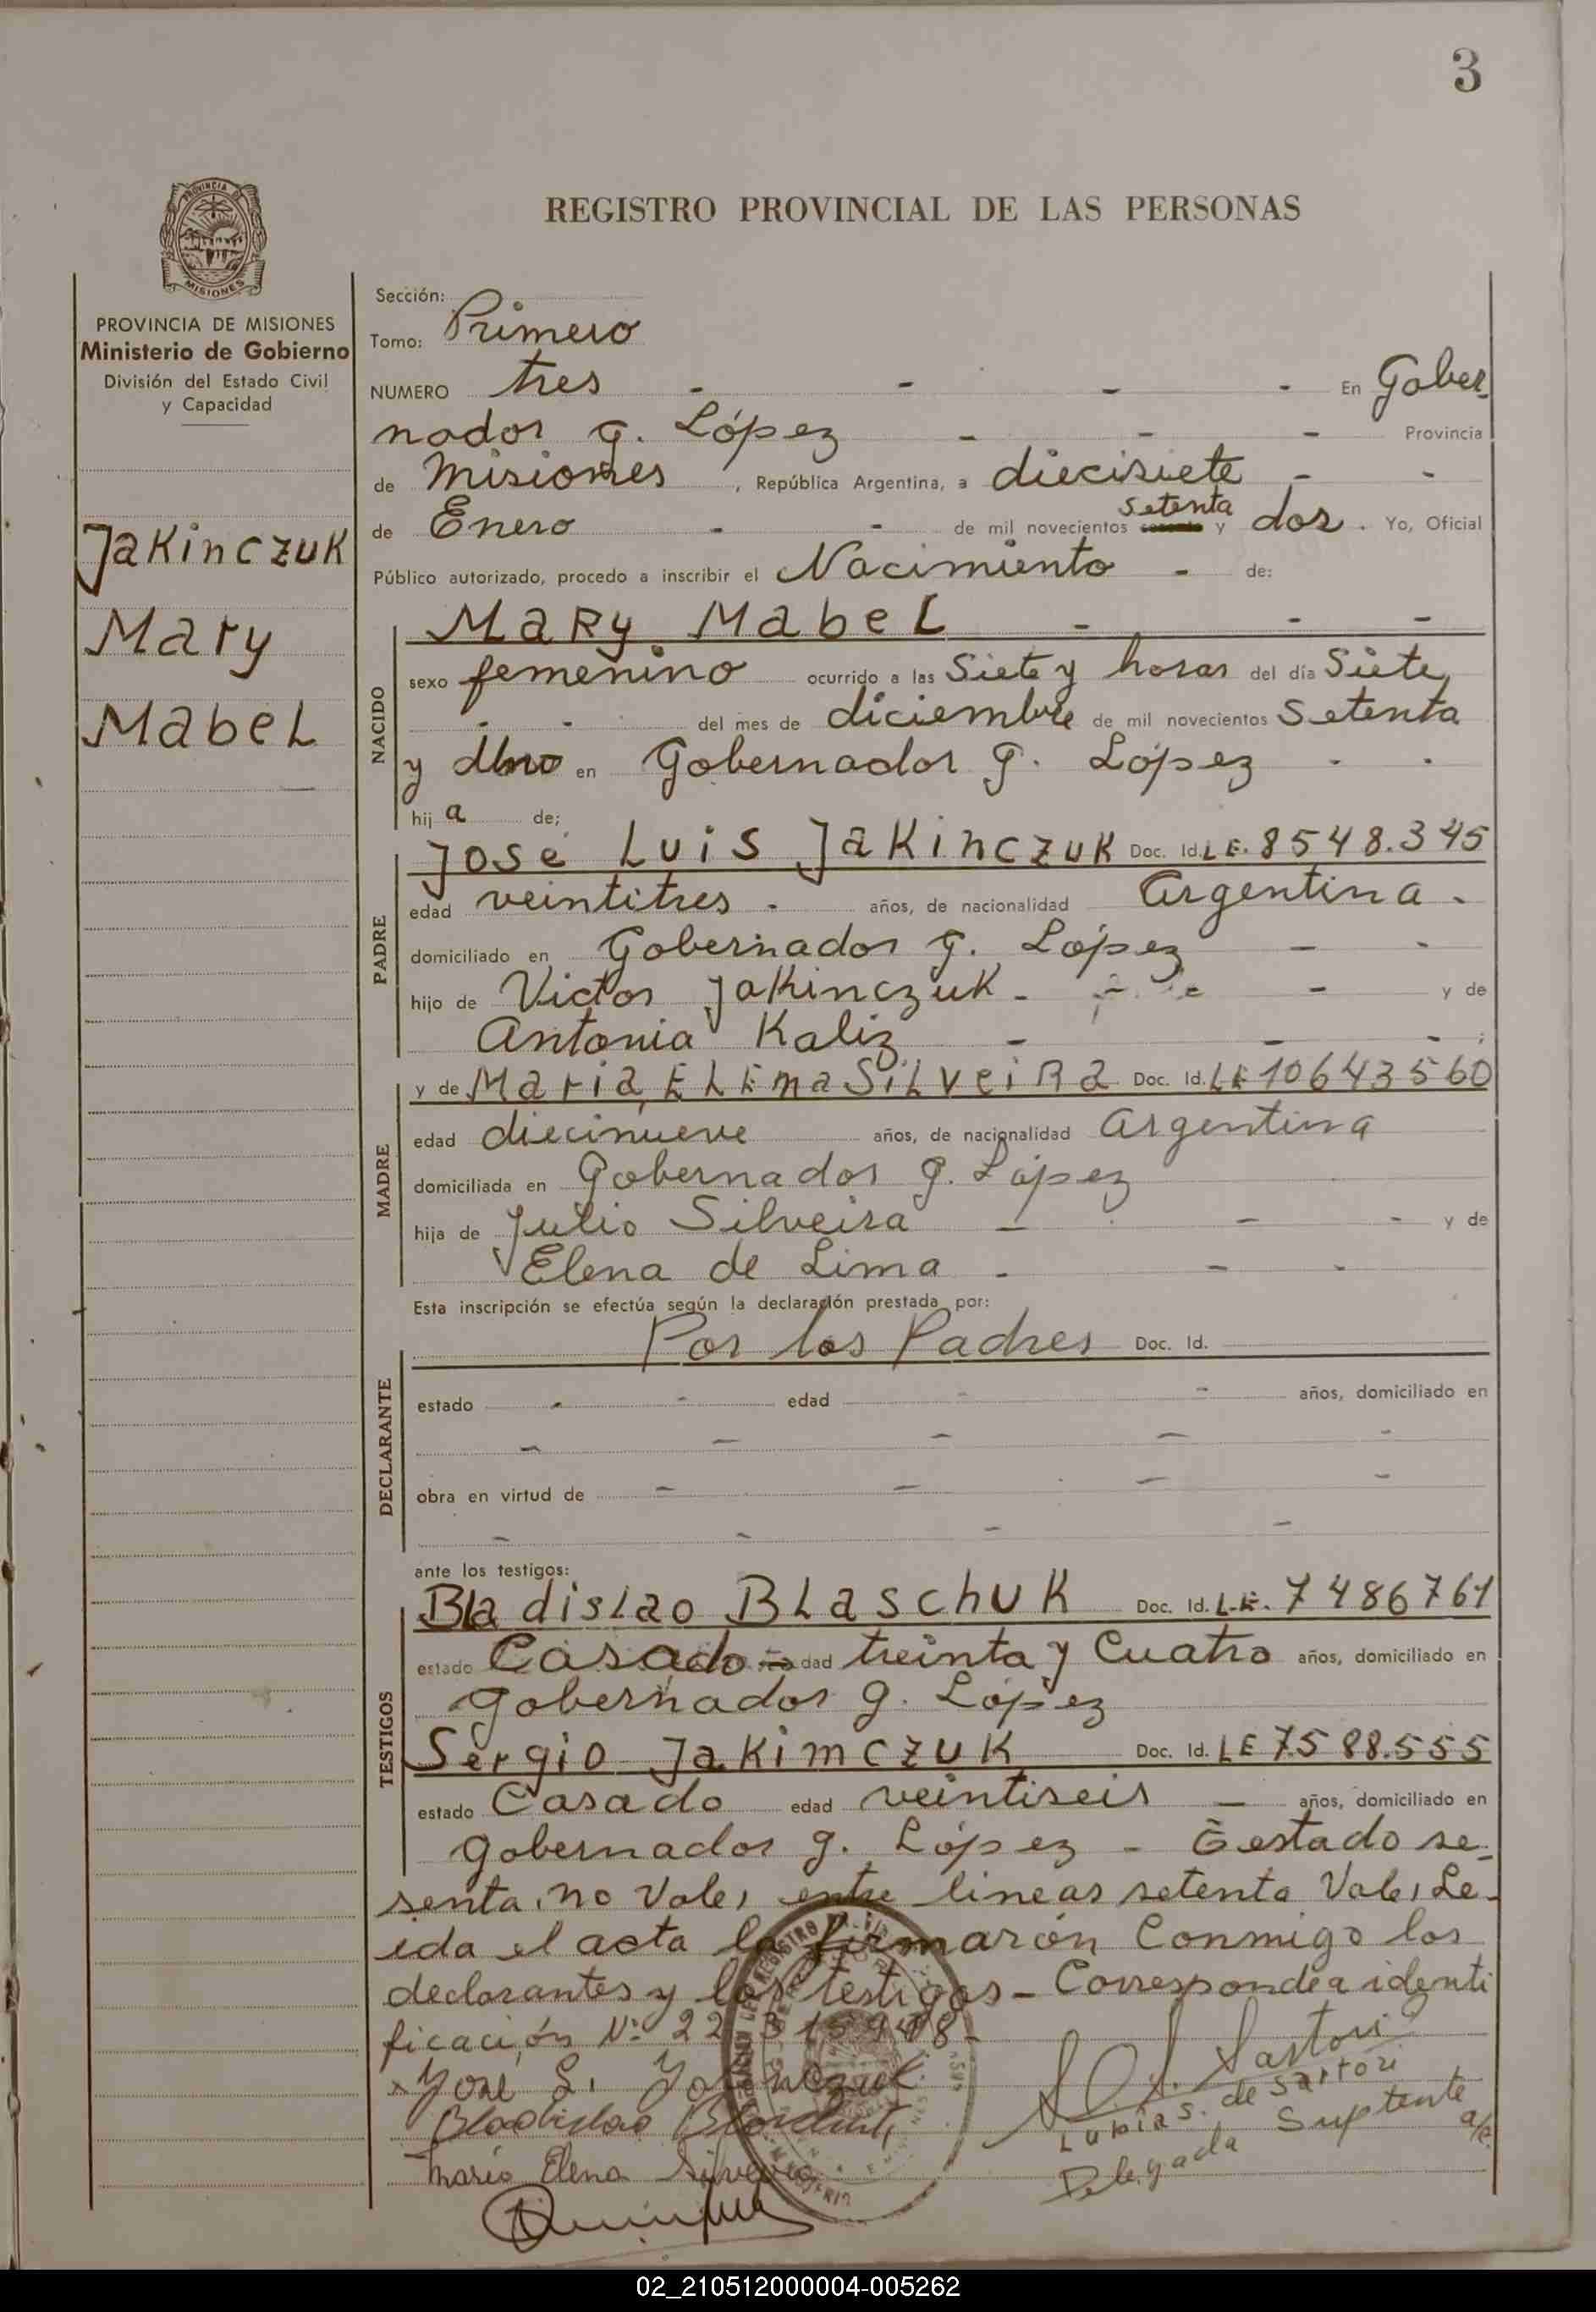 3
REGISTRO PROVINCIAL DE LAS PERSONAS
PROVINCIA DE
MISIONES
PROVINCIA DE MISIONES
Ministerio de Gobierno
División del Estado Civil
y Capacidad
Jakinczuk
Mary
Mabel
Sección:
Tomo: Primero
NUMERO tres - - - - En Gober-
nador G. López - - - Provincia
de Misiones, República Argentina, a diecisiete - -
de Enero - - de mil novecientos setenta y dos. Yo, Oficial
Público autorizado, procedo a inscribir el Nacimiento - de:
NACIDO
Mary Mabel - - -
sexo femenino ocurrido a las Siete y horas del día Siete
- - del mes de diciembre de mil novecientos Setenta
y Uno en Gobernador G. López - -
hij a de;
PADRE
José Luis Jakinczuk Doc. Id. L.E. 8548.345
edad veintitres - años, de nacionalidad Argentina -
domiciliado en Gobernador G. López - -
hijo de Victor Jakinczuk - - - y de
Antonia Kaliz - - - ;
MADRE
y de Maria ELEna SiLveiRa Doc. Id. LE 10643560
edad diecinueve años, de nacionalidad Argentina
domiciliada en Gobernador G. López
hija de Julio Silveira - - - y de
Elena de Lima - - -
Esta inscripción se efectúa según la declaración prestada por:
DECLARANTE
Por los Padres Doc. Id.
estado - - edad - - años, domiciliado en
- - - - -
obra en virtud de - - - -
- - - -
ante los testigos:
TESTIGOS
Bladislao BLaschuk Doc. Id. L.E. 7486761
estado Casado edad treinta y Cuatro años, domiciliado en
Gobernador G. López
Sergio Jakimczuk Doc. Id. LE 7.588.555
estado Casado edad veintiseis - años, domiciliado en
Gobernador G. López - Testado se-
senta, no Vale, entre lineas setenta Vale, Le-
ida el acta la firmarón Conmigo los
declarantes y los testigos - Corresponde a identi
ficación Nº 22
José L.
Bladislao
Maria Elena Silveira
Sartori
Lubia S. de Sartori
Delegada Suptente a/c.
02_210512000004-005262